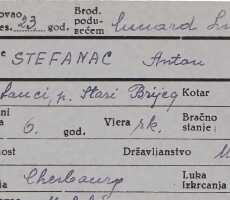 ovao
es. 23 god. Brod. podu-
rećem Cunard
e STEFANAC Antun
p. Stari Brijeg Kotar
ni
a 6. god. Vjera rk. Bračno
stanje
nost Državljanstvo
ja Cherbourg Luka
Iskrcanja